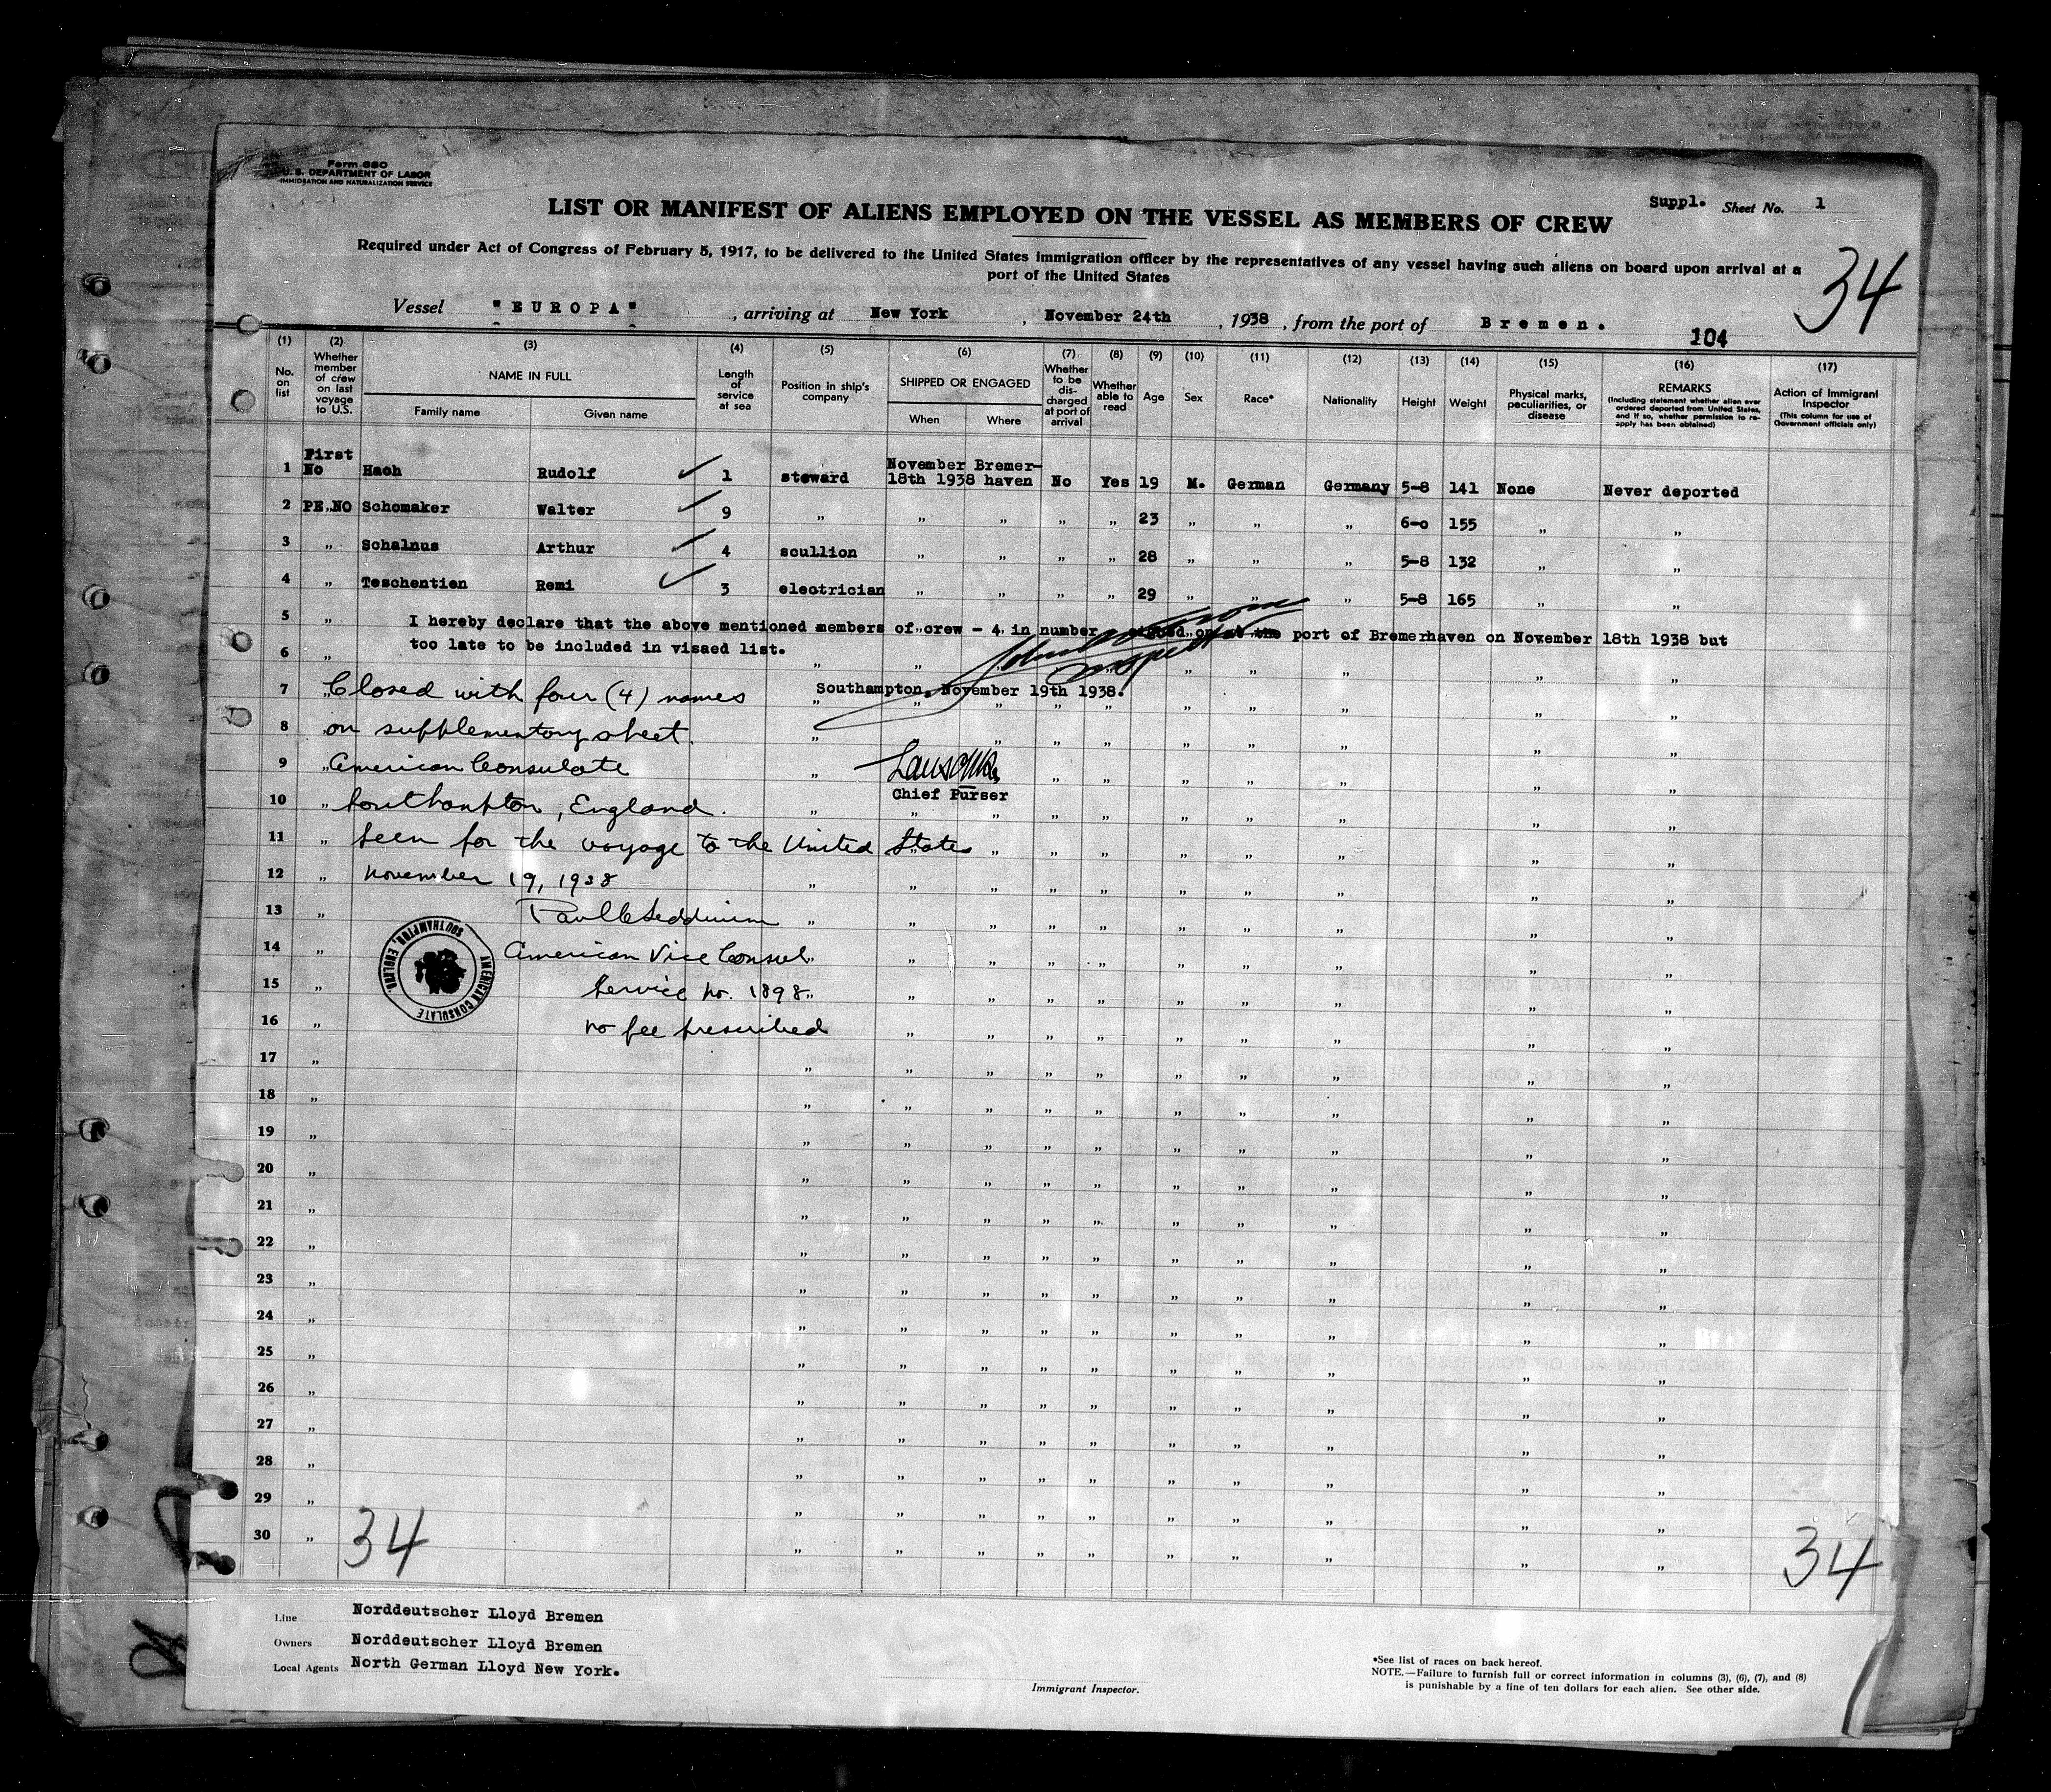 Form 680
U. S. DEPARTMENT OF LABOR
IMMIGRATION AND NATURALIZATION SERVICE
Suppl. Sheet No. 1
LIST OR MANIFEST OF ALIENS EMPLOYED ON THE VESSEL AS MEMBERS OF CREW
Required under Act of Congress of February 5, 1917, to be delivered to the United States immigration officer by the representatives of any vessel having such aliens on board upon arrival at a
port of the United States
34
Vessel "EUROPA", arriving at New York, November 24th, 1938, from the port of Bremen.
104
(1) (2) (3) (4) (5) (6) (7) (8) (9) (10) (11) (12) (13) (14) (15) (16) (17)
No. on list
Whether member of crew on last voyage to U.S.
NAME IN FULL
Family name Given name
Length of service at sea
Position in ship's company
SHIPPED OR ENGAGED
When Where
Whether to be discharged at port of arrival
Whether able to read
Age
Sex
Race*
Nationality
Height
Weight
Physical marks, peculiarities, or disease
REMARKS
(Including statement whether alien ever ordered deported from United States, and if so, whether permission to re-apply has been obtained)
Action of Immigrant Inspector
(This column for use of Government officials only)
1 First No Hach Rudolf 1 steward November 18th 1938 Bremer-haven No Yes 19 M. German Germany 5-8 141 None Never deported
2 PE.NO Schomaker Walter 9 „ „ „ „ „ 23 „ „ „ 6-0 155 „ „
3 „ Schalnus Arthur 4 scullion „ „ „ „ 28 „ „ „ 5-8 132 „ „
4 „ Teschentien Remi 3 electrician „ „ „ „ 29 „ „ „ 5-8 165 „ „
5 „ I hereby declare that the above mentioned members of crew - 4 in number signed on at the port of Bremerhaven on November 18th 1938 but
6 „ too late to be included in visaed list.
7 „ Closed with four (4) names Southampton, November 19th 1938.
8 „ on supplementary sheet.
9 „ American Consulate
10 „ Southampton, England. Chief Purser
11 „ Seen for the voyage to the United States
12 „ November 19, 1938
13 „
14 „ American Vice Consul
15 „ Service No. 1898
16 „ no fee prescribed
AMERICAN CONSULATE
SOUTHAMPTON, ENGLAND.
17 „
18 „
19 „
20 „
21 „
22 „
23 „
24 „
25 „
26 „
27 „
28 „
29 „
30 „
34
34
Line Norddeutscher Lloyd Bremen
Owners Norddeutscher Lloyd Bremen
Local Agents North German Lloyd New York.
Immigrant Inspector.
*See list of races on back hereof.
NOTE.—Failure to furnish full or correct information in columns (3), (6), (7), and (8)
is punishable by a fine of ten dollars for each alien. See other side.